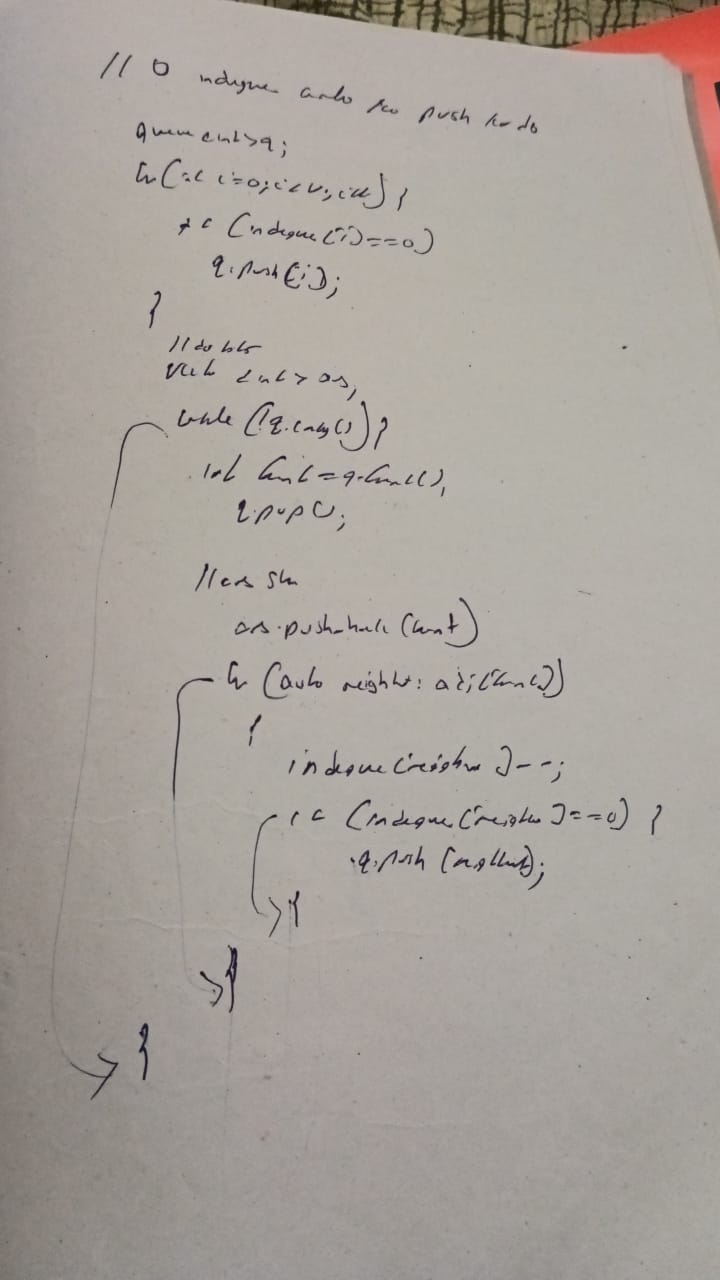 // 0 indegree walo ko push kardo
queue<int>q;
for(int i=0;i<v;i++){
if (indegree[i]==0)
q.push(i);
}
// do bfs
vector<int> ans;
while(!q.empty()){
int front=q.front();
q.pop();
// ans store
ans.push_back(front)
for (auto neighbour: adj[front])
{
indegree[neighbour]--;
if (indegree[neighbour]==0) {
q.push(neighbour);
}
}
}